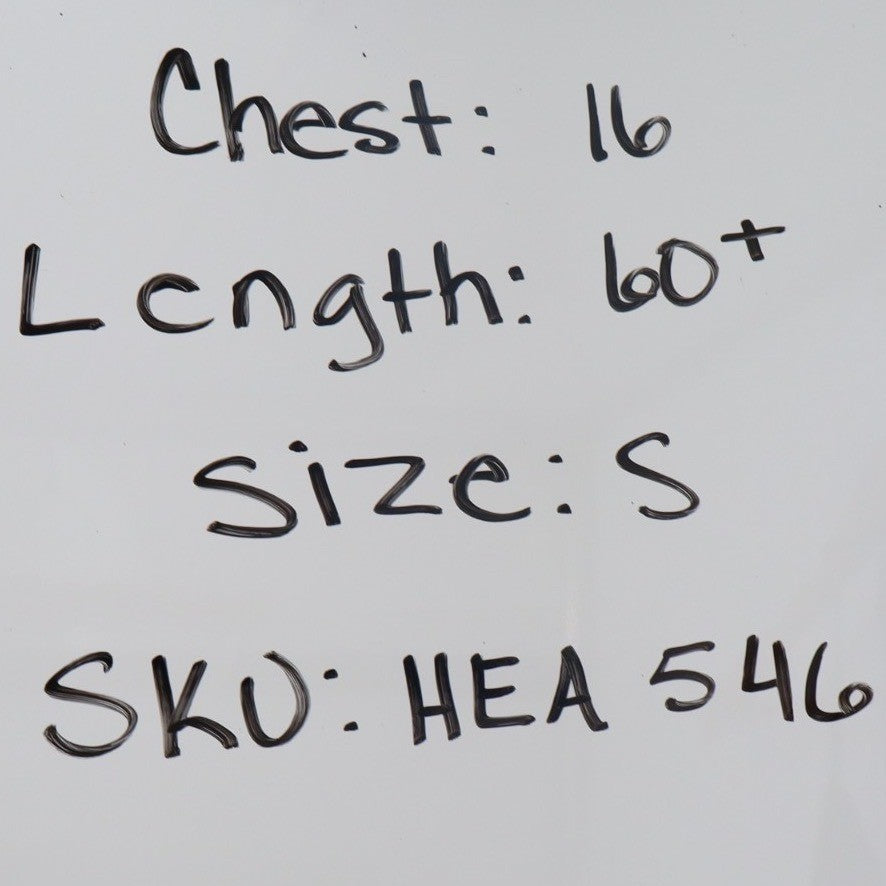 Chest: 16
Length: 60+
Size: S
SKU: HEA 546